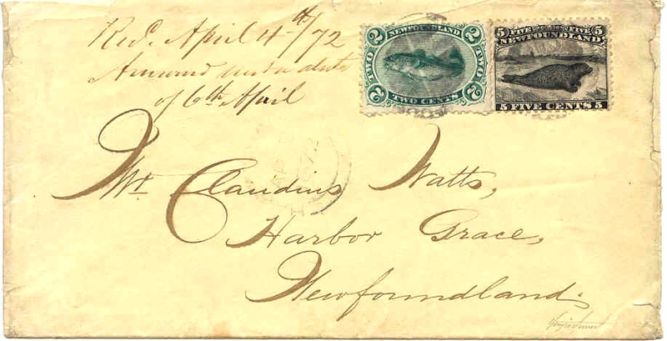 Recd. April 4th/72
Answered under date
of 6th April
2 NEWFOUNDLAND 2
TWO TWO
2 TWO CENTS 2
5 FIVE FIVE 5
NEWFOUNDLAND
5 FIVE CENTS 5
Mr Claudius Watts,
Harbor Grace,
Newfoundland.